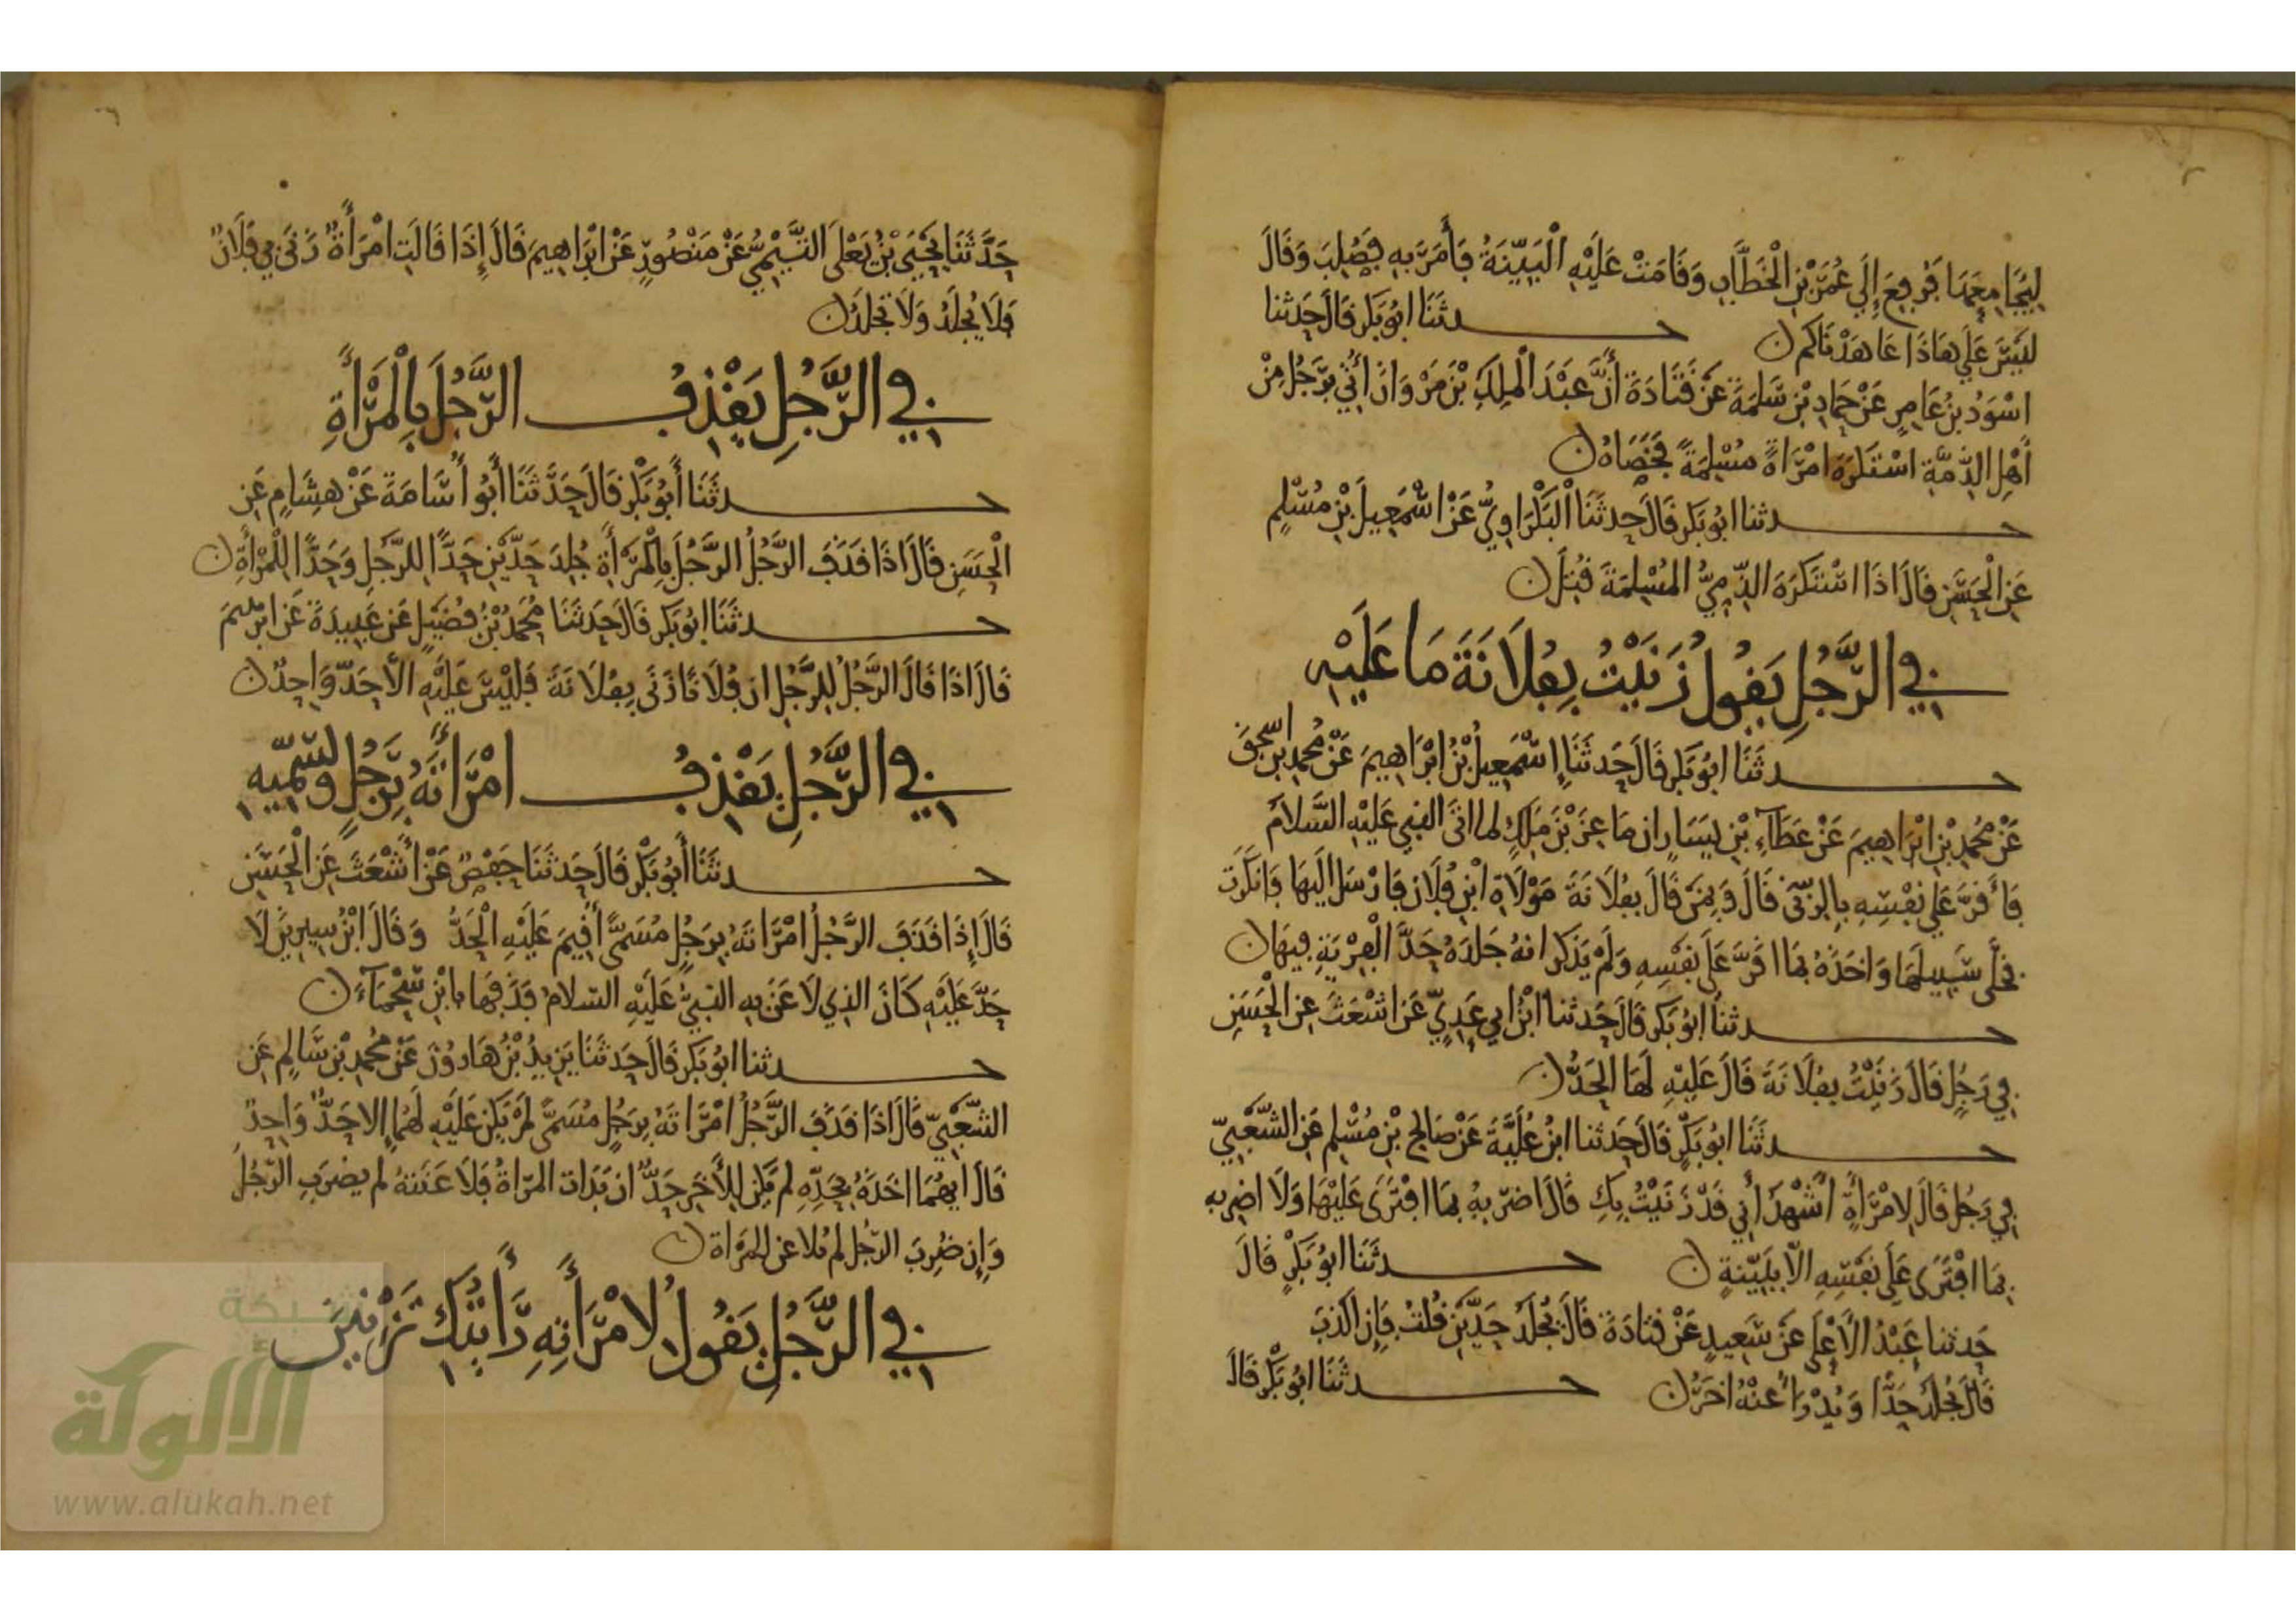 ليجامعها فرفع إلي عمر بن الخطاب وقامت عليه البينة فأمر به فصلب وقال
ليس علي هاذا عاهدناكم ن حدثنا ابو بكر قال حدثنا
اسود بن عامر عن حماد بن سلمة عن قتادة أن عبد الملك بن مروان أتي برجل من
أهل الذمة استكره امراة مسلمة فخصاه ن
حدثنا ابو بكر قال حدثنا البكراوي عن اسمعيل بن مسلم
عن الحسن قال اذا استكره الذمي المسلمة قتل ن
في الرجل يقول زنيت بفلانة ما عليه
حدثنا ابو بكر قال حدثنا إسمعيل بن ابراهيم عن محمد بن اسحق
عن محمد بن ابراهيم عن عطاء بن يسار ان ماعز بن ملك لما اتى النبي عليه السلام
فأقر علي نفسه بالزنى قال وبمن قال بفلانة مولاة ابن فلان فارسل اليها فانكرت
فخلى سبيلها واخذه بما اقر على نفسه ولم يذكر انه جلده حد الفرية فيها ن
حدثنا ابو بكر قال حدثنا ابن ابي عدي عن اشعث عن الحسن
في رجل قال زنيت بفلانة قال عليه لها الحد ن
حدثنا ابو بكر قال حدثنا ابن علية عن صالح بن مسلم عن الشعبي
في رجل قال لامرأة أشهد أني قد زنيت بك قال اضربه بما افترى عليها ولا اضربه
بما افترى على نفسه الا ببينة ن حدثنا ابو بكر قال
حدثنا عبد الأعلى عن سعيد عن قتادة قال يجلد حدين قلت فإن اكذب
قال يجلد حدا ويدرأ عنه اخر ن حدثنا ابو بكر قال
حدثنا يحيى بن يعلى التيمي عن منصور عن ابراهيم قال إذا قالت امرأة زنى بي فلان
فلا يجلد ولا تجلد ن
في الرجل يقذف الرجل بالمرأة
حدثنا أبو بكر قال حدثنا أبو أسامة عن هشام عن
الحسن قال اذا قذف الرجل الرجل بالمرأة جلد حدين حدا للرجل وحدا للمرأة ن
حدثنا ابو بكر قال حدثنا محمد بن فضيل عن عبيدة عن ابرهيم
قال اذا قال الرجل للرجل ان فلانا زنى بفلانة فليس عليه الا حد واحد ن
في الرجل يقذف امرأته برجل ويسميه
حدثنا أبو بكر قال حدثنا حفص عن أشعث عن الحسن
قال إذا قذف الرجل امراته برجل مسمى أقيم عليه الحد وقال ابن سيرين لا
حد عليه كان الذي لاعن به النبي عليه السلام قذفها بابن سحماء ن
حدثنا ابو بكر قال حدثنا يزيد بن هارون عن محمد بن سالم عن
الشعبي قال اذا قذف الرجل امراته برجل مسمى لم يكن عليه لهما إلا حد واحد
قال ايهما اخذه بحده لم يكن للأخر حد ان بدات المراة فلاعنته لم يضرب الرجل
وإن ضرب الرجل لم يلاعن المراة ن
في الرجل يقول لامرأته رأيتك تزنين
شبكة
الألوكة
www.alukah.net